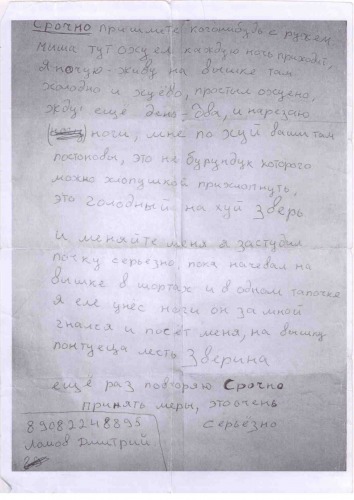 Срочно пришлите когонибудь с ружьем
миша тут ожуел каждую ночь приходит,
я ночую-живу на вышке там
холодно и жуёво, простыл ожуено,
жду еще день-два, и нарезаю
ноги, мне по жуй ваши там
постановы, это не бурундук которого
можно хлопушкой прихлопнуть,
это голодный на хуй зверь
и меняйте меня я застудил
почку серьезно, пока ночевал на
вышке в шортах и в одном тапочке
я еле унес ноги он за мной
гнался и пасёт меня, на вышку
зверина
ещё раз повторяю Срочно
принять меры, это очень
серьезно
89082248895
Ломов Дмитрий